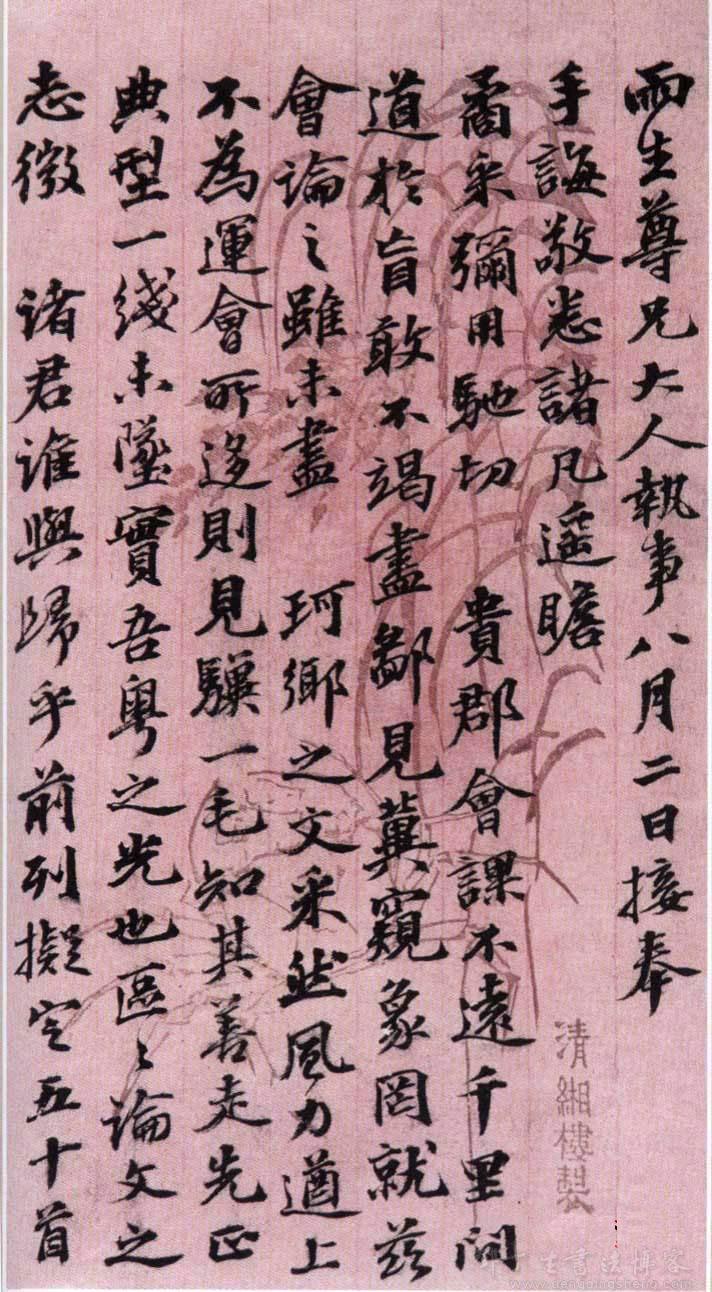 雨生尊兄大人執事八月二日接奉
手誨敬悉諸凡遥瞻
矞采彌用馳切 貴郡會課不遠千里問
道於盲敢不竭盡鄙見冀窺象罔就茲
會論之雖未盡 珂鄉之文采然風力遒上
不為運會所迻則見驥一毛知其善走先正
典型一綫未墜實吾粤之光也區〻論文之
志微 诸君谁與歸乎前列擬定五十首
清緗樓製
丁生書法博客
www.dengdingsheng.com